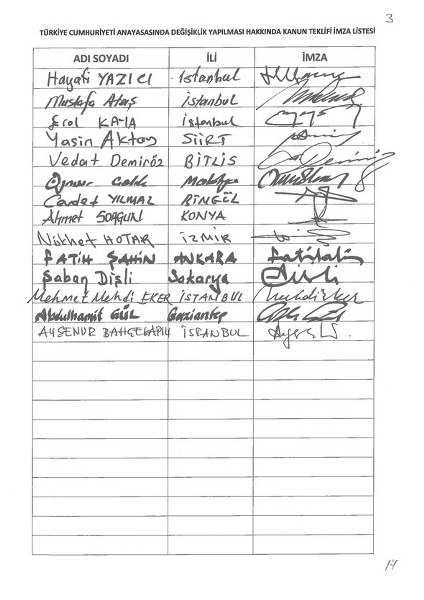 3
TÜRKİYE CUMHURİYETİ ANAYASASINDA DEĞİŞİKLİK YAPILMASI HAKKINDA KANUN TEKLİFİ İMZA LİSTESİ
ADI SOYADI İLİ İMZA
Hayati YAZICI İstanbul
Mustafa Ataş İstanbul
Erol KAYA İstanbul
Yasin Aktay SİİRT
Vedat Demiröz BİTLİS
Öznur Malatya
Cevdet YILMAZ BİNGÖL
Ahmet SORGUN KONYA
Nükhet HOTAR İZMİR
FATİH ŞAHİN ANKARA
Şaban Dişli Sakarya
Mehmet Mehdi EKER İSTANBUL
Abdulhamit GÜL Gaziantep
AYŞENUR BAHÇEKAPILI İSTANBUL
14